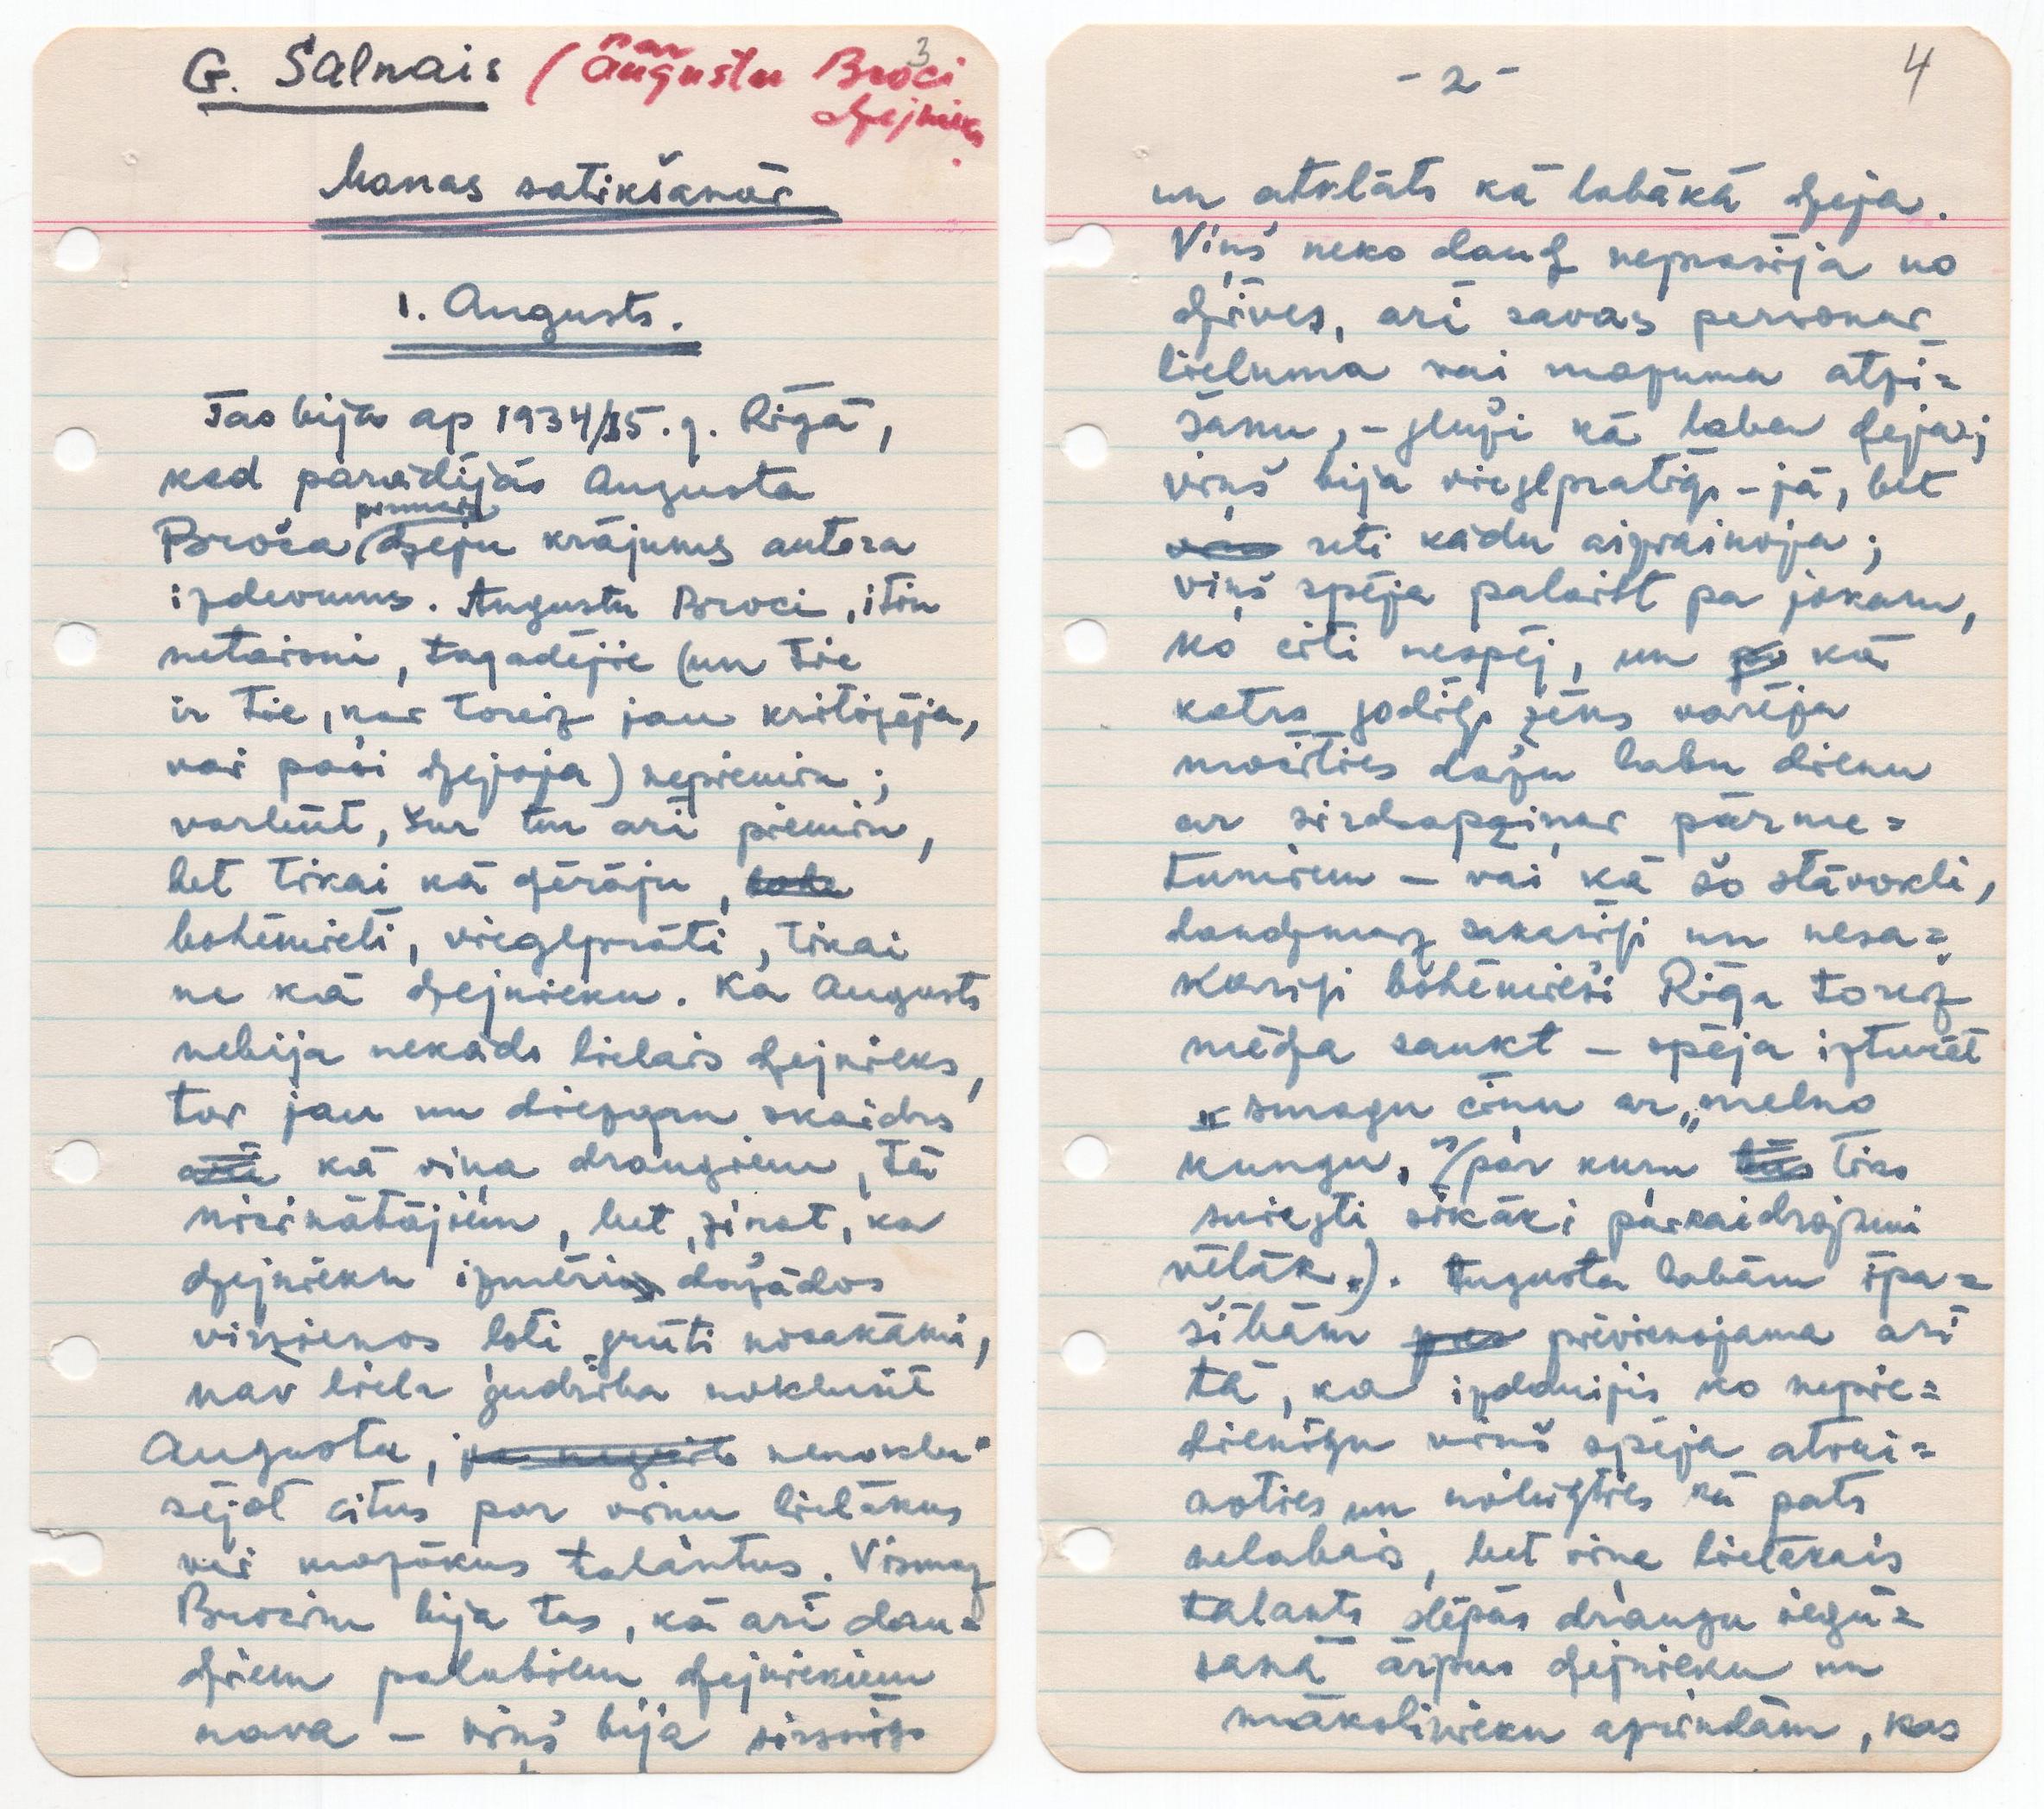 G. Salnais (par Augustu Broci
dzejnieku.
3
Manas satikšanās
1. Augusts.
Tas bija ap 1934/35. g. Rīgā,
kad parādījās Augusta
Broča pirmais dzeju krājums autora
izdevums. Augustu Broci, itin
netaisni, tagadējie (un tie
ir tie, kas toreiz jau kritizēja,
vai paši dzejoja) nepiemin;
varbūt, šur tur arī piemin,
bet tikai kā dzērāju,
bohēmieti, vieglprāti, tikai
ne kā dzejnieku. Ka Augusts
nebija nekāds lielais dzejnieks,
tas jau un diezgan skaidrs
kā viņa draugiem, tā
nicinātājiem, bet, zinot, ka
dzejnieku izmēri dažādos
virzienos ļoti grūti nosakāmi,
nav liela gudrība noklusēt
Augustu, nenoklu-
sējot citus par viņu lielākus
vai mazākus talantus. Vismaz
Brocim bija tas, kā arī dau-
dziem palabiem dzejniekiem
nava – viņš bija sirsnīgs
- 2 -
4
un atklāts kā labākā dzeja.
Viņš neko daudz neprasīja no
dzīves, arī savas personas
lieluma vai mazuma atzī=
šanu, – gluži kā laba dzeja;
viņš bija vieglprātīgs – jā, bet
reti kādu aizvainoja;
viņš spēja palaist pa jokam,
ko citi nespēj, un kā
katrs godīgs zēns varēja
mocīties dažu labu dienu
ar sirdsapziņas pārme=
tumiem – vai kā šo stāvokli,
daudzmaz sakarīgi un nesa=
karīgi bohēmieši Rīgā toreiz
mēdza saukt – spēja izturēt
smagu cīņu ar „melno
kungu," (par kuru tiks
sniegti sīkāki paskaidrojumi
vēlāk.). Augusta labām īpa=
šībām pievienojama arī
tā, ka izdarījis ko nepie=
dienīgu viņš spēja atvai=
noties un nobīties kā pats
nelabais, bet viņa lielākais
talants slēpās draugu iegū=
šanā ārpus dzejnieku un
mākslinieku aprindām, kas